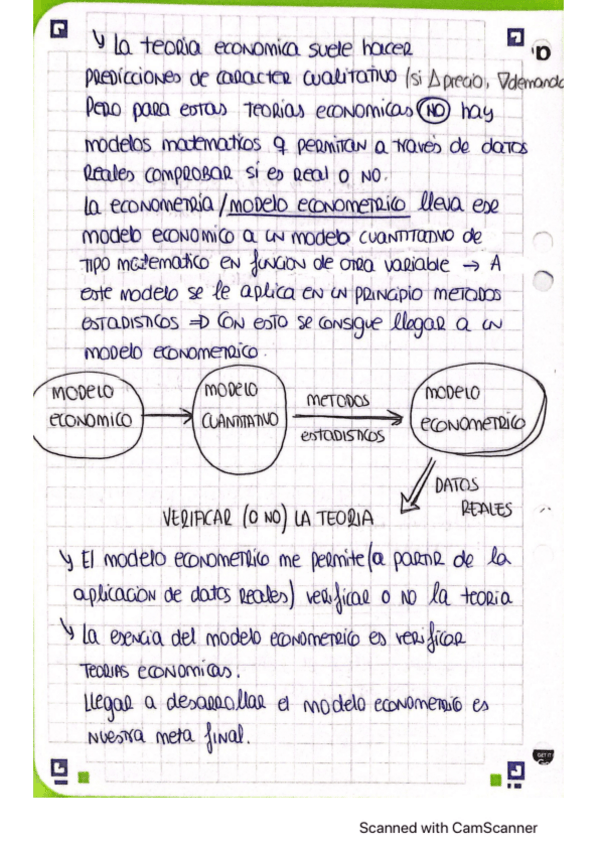 La teoria economica suele hacer
predicciones de caracter cualitativo (si Δ precio, ∇ demanda
Pero para estas teorias economicas NO hay
modelos matematicos q permitan a través de datos
Reales comprobar si es real o no.
La econometría / modelo econometrico lleva ese
modelo economico a un modelo cuantitativo de
tipo matematico en funcion de otra variable → A
este modelo se le aplica en un principio metodos
estadisticos ⇒ Con esto se consigue llegar a un
modelo econometrico.
MODELO ECONOMICO → MODELO CUANTITATIVO METODOS ESTADISTICOS → MODELO ECONOMETRICO
DATOS
REALES
VERIFICAR (O NO) LA TEORIA
El modelo econometrico me permite (a partir de la
aplicación de datos reales) verificar o no la teoria
La esencia del modelo econometrico es verificar
teorias economicas.
Llegar a desarrollar el modelo econometrico es
nuestra meta final.
Scanned with CamScanner